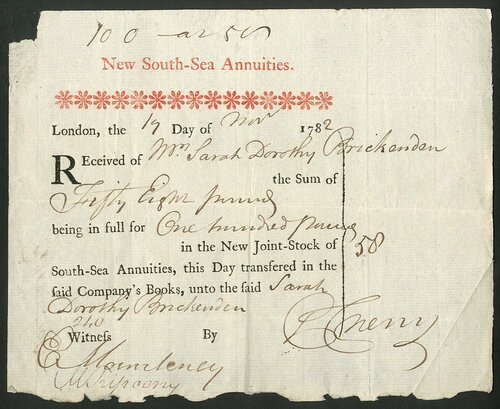 100 - at 58
New South-Sea Annuities.
London, the 19 Day of Novr 1782
Received of Mrs Sarah Dorothy Brickenden
the Sum of
Fifty Eight pounds
being in full for One hundred pounds
in the New Joint-Stock of
58
South-Sea Annuities, this Day transfered in the
said Company's Books, unto the said Sarah
Dorothy Brickenden
240
Witness By